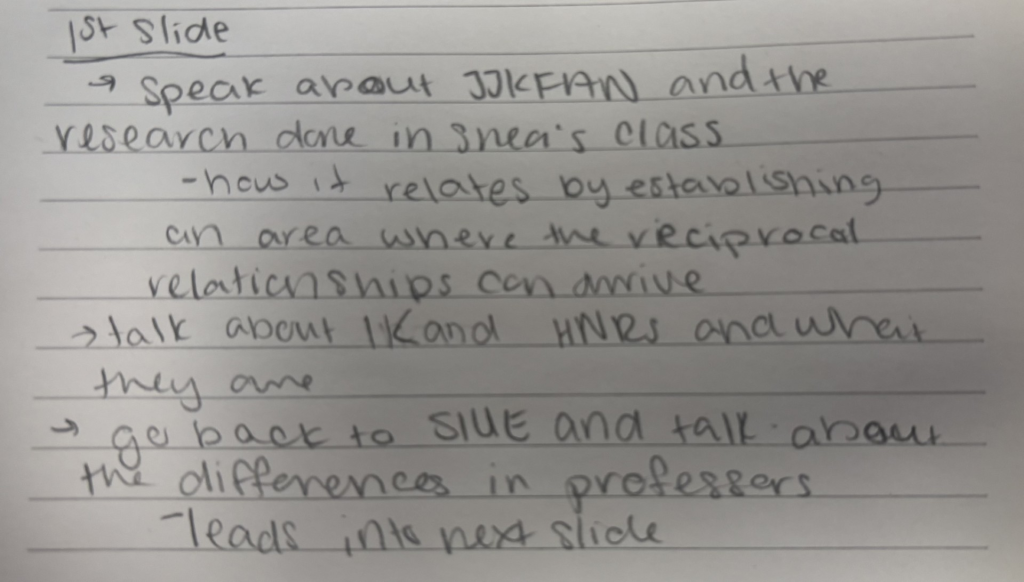 1st slide
→ speak about JJKFAN and the
research done in Shea's class
- how it relates by establishing
an area where the reciprocal
relationships can arrive
→ talk about IK and HNRs and what
they are
→ go back to SIUE and talk about
the differences in professers
- leads into next slide